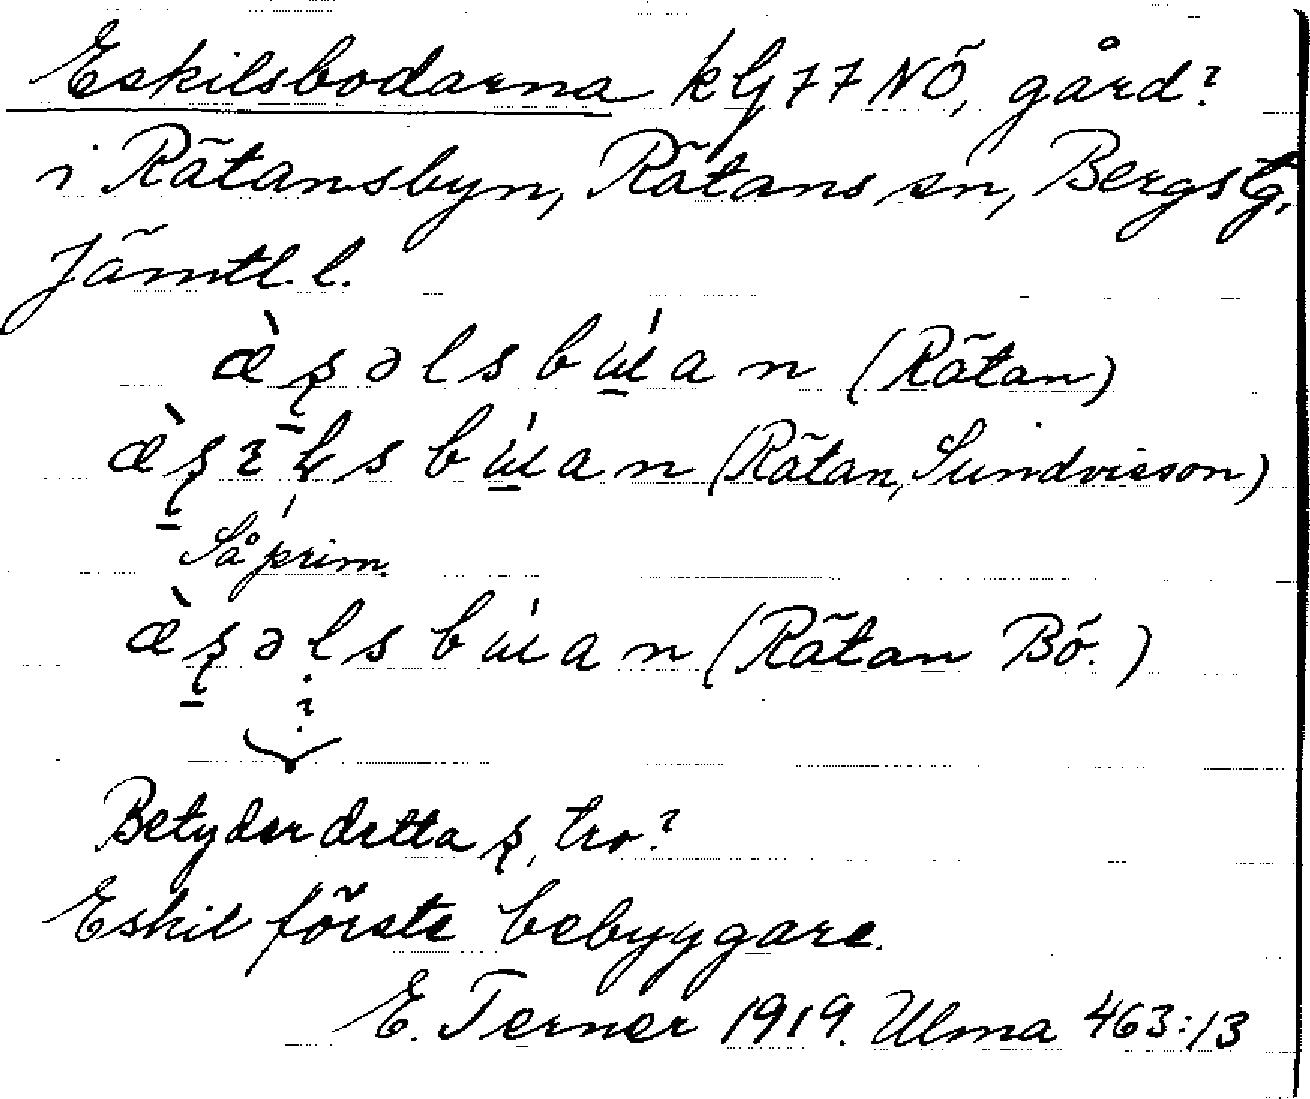 Eskilsbodarna kG 77 NÖ, gård?
i Rätansbyn, Rätans sn, Bergs tg,
Jämtl. l.
(Rätan)
(Rätan, Sundvisson)
Så prim.
(Rätan Bö.)
?
Betyder detta ʂ, tro?
Eskil förste bebyggare.
E. Terner 1919. Ulma 463:13